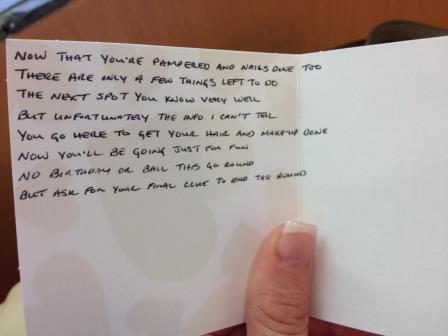 NOW THAT YOU'RE PAMPERED AND NAILS DONE TOO
THERE ARE ONLY A FEW THINGS LEFT TO DO
THE NEXT SPOT YOU KNOW VERY WELL
BUT UNFORTUNATELY THE INFO I CAN'T TELL
YOU GO HERE TO GET YOUR HAIR AND MAKEUP DONE
NOW YOU'LL BE GOING JUST FOR FUN
NO BIRTHDAY OR BALL THIS GO ROUND
BUT ASK FOR YOUR FINAL CLUE TO END THE ROUND